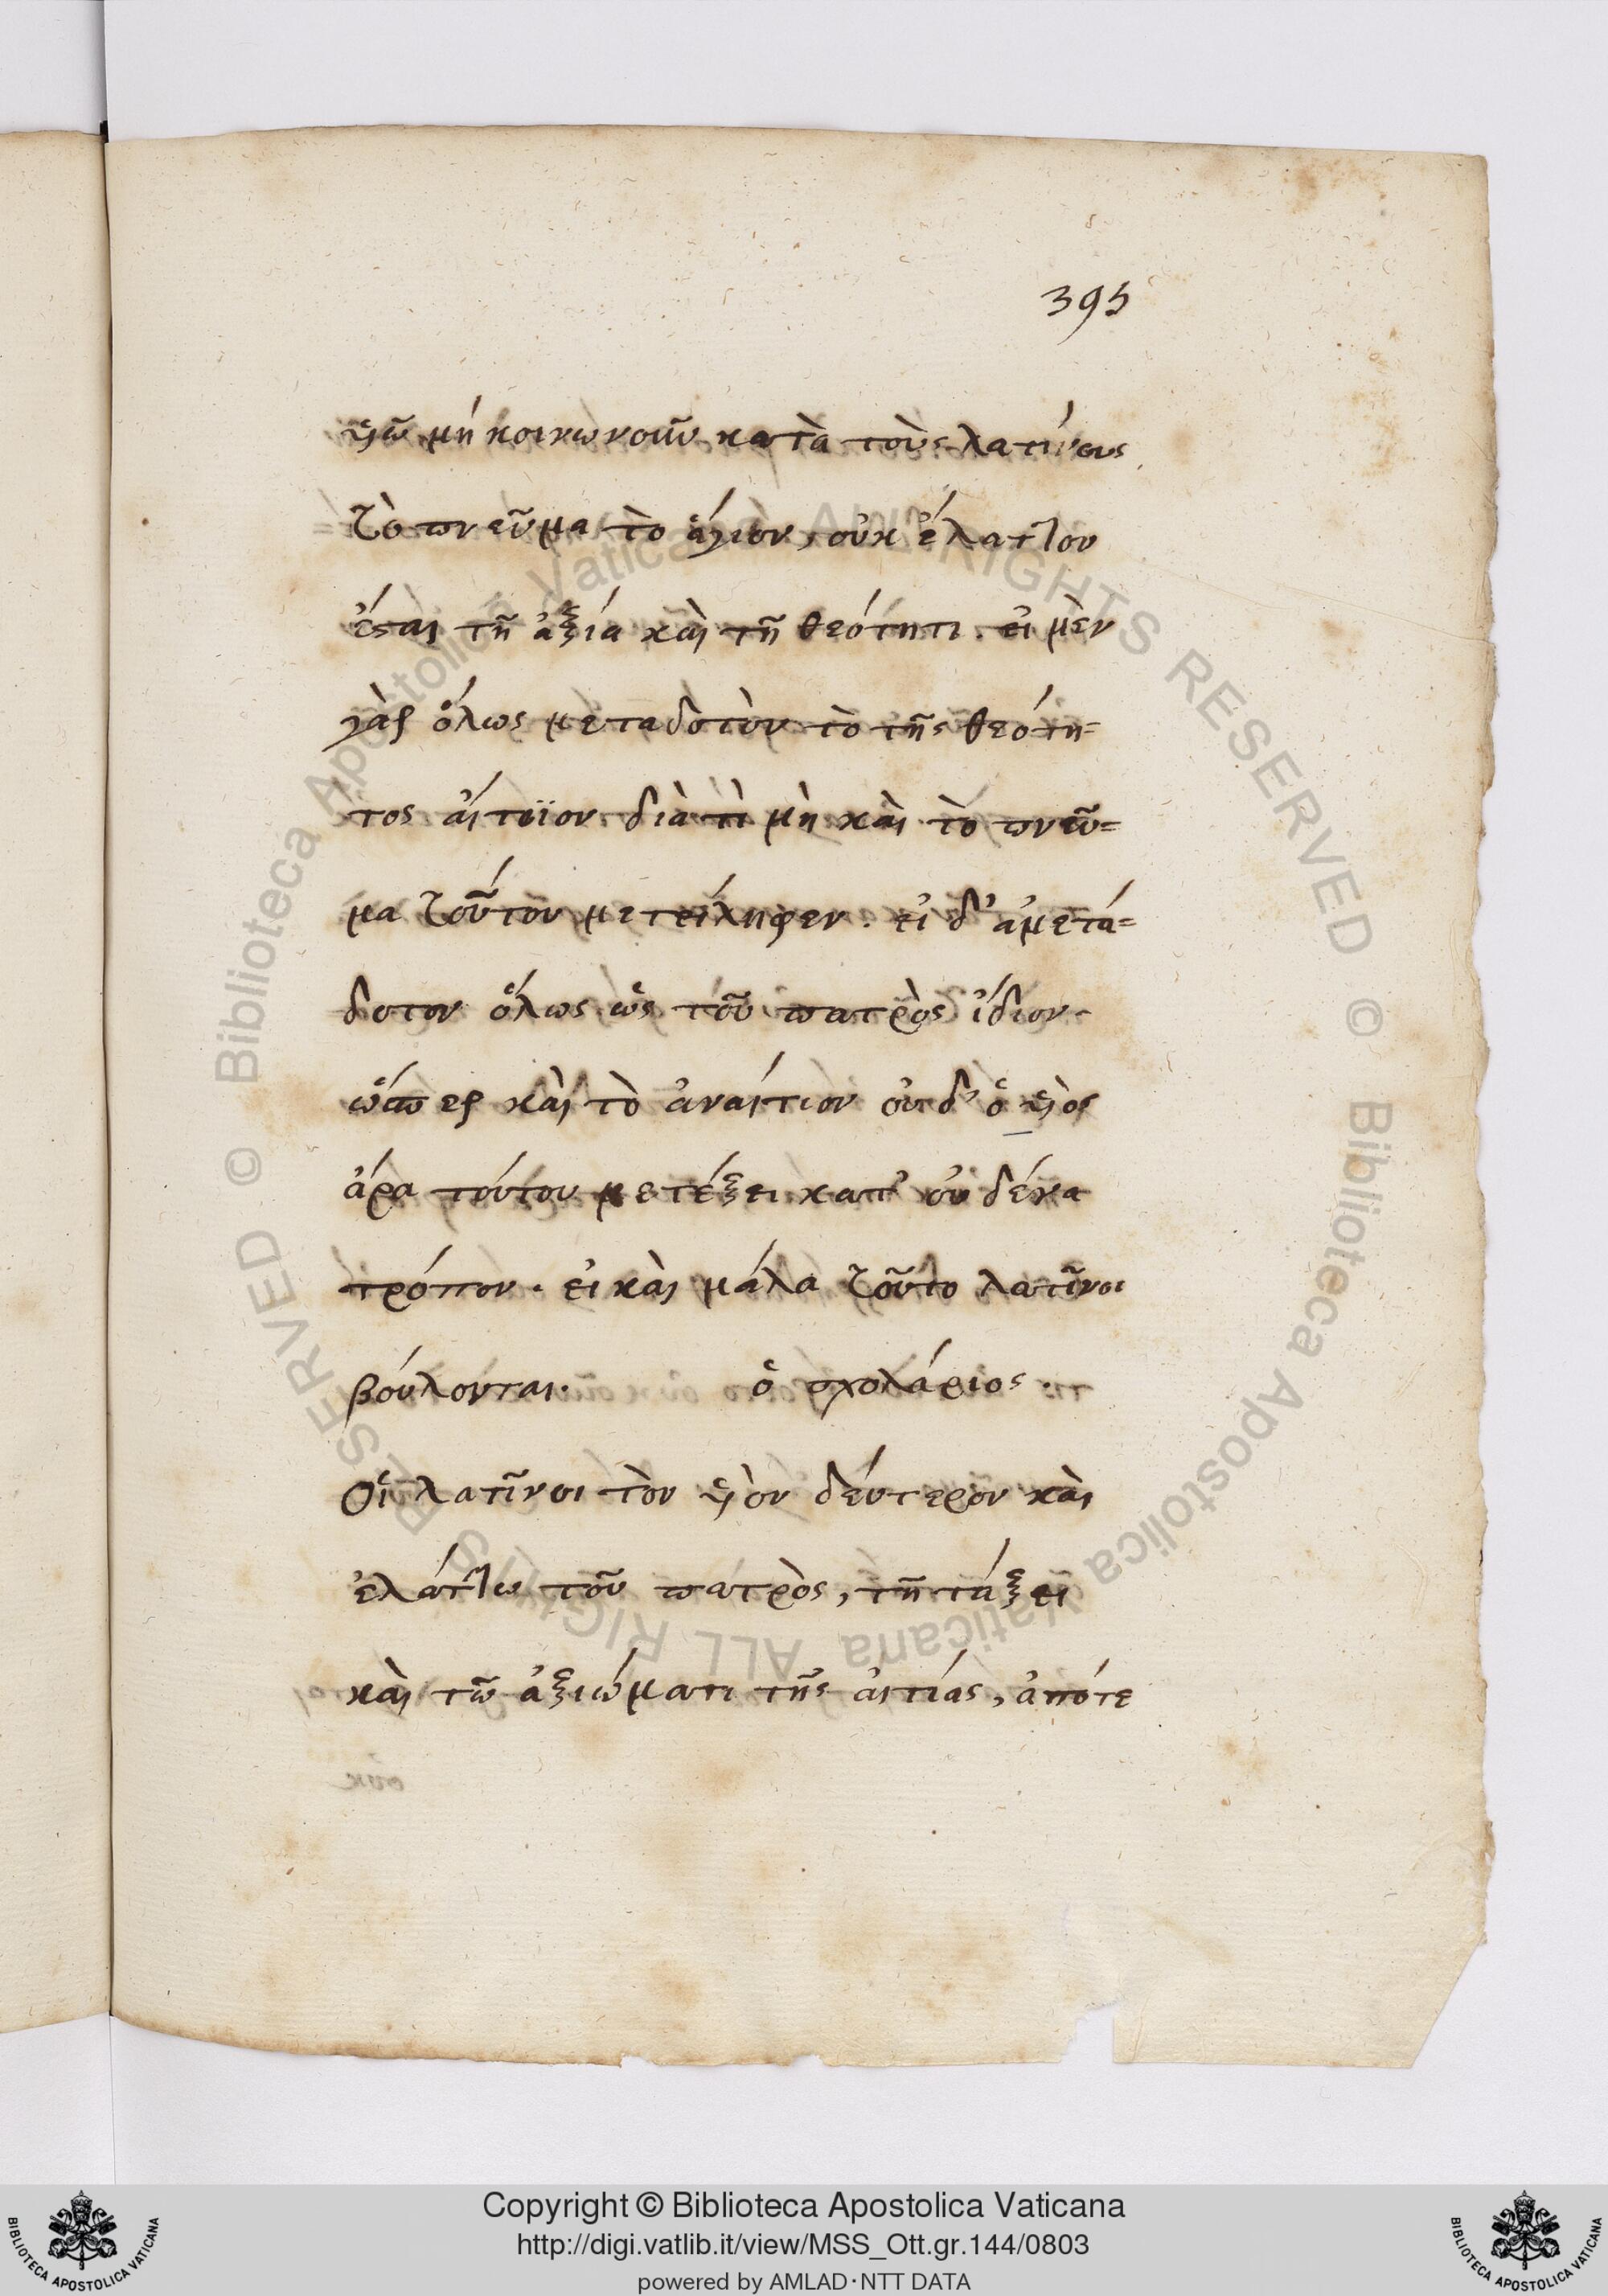 395
υἱῷ μὴ κοινωνοῦν κατὰ τοὺς λατίνους
τὸ πνεῦμα τὸ ἅγιον, οὐκ ἔλαττον
ἔσται τῆ ἀξία καὶ τῆ θεότητι. εἰ μὲν
γὰρ ὅλως μεταδοτὸν τὸ τῆς θεότη=
τος αἴτιον διὰ τὶ μὴ καὶ τὸ πνεῦ=
μα τοῦτον μετείληφεν. εἰ δ' ἀμετά=
δοτον ὅλως ὡς τοῦ πατρὸς ἴδιον.
ὥσπερ καὶ τὸ ἀναίτιον οὐδ' ὁ υἱὸς
ἄρα τούτου μετέξει κατ' οὐδένα
τρόπον. εἰ καὶ μάλα τοῦτο λατῖνοι
βούλονται. ὁ σχολάριος.
Οἱ λατῖνοι τὸν υἱὸν δεύτερον καὶ
ἐλάττω τοῦ πατρὸς, τῆ τάξει
καὶ τῶ ἀξιώματι τῆς αἰτίας, ἀπότε
Copyright © Biblioteca Apostolica Vaticana
http://digi.vatlib.it/view/MSS_Ott.gr.144/0803
powered by AMLAD·NTT DATA
BIBLIOTECA APOSTOLICA VATICANA
BIBLIOTECA APOSTOLICA VATICANA
© Biblioteca Apostolica Vaticana ALL RIGHTS RESERVED © Biblioteca Apostolica Vaticana ALL RIGHTS RESERVED